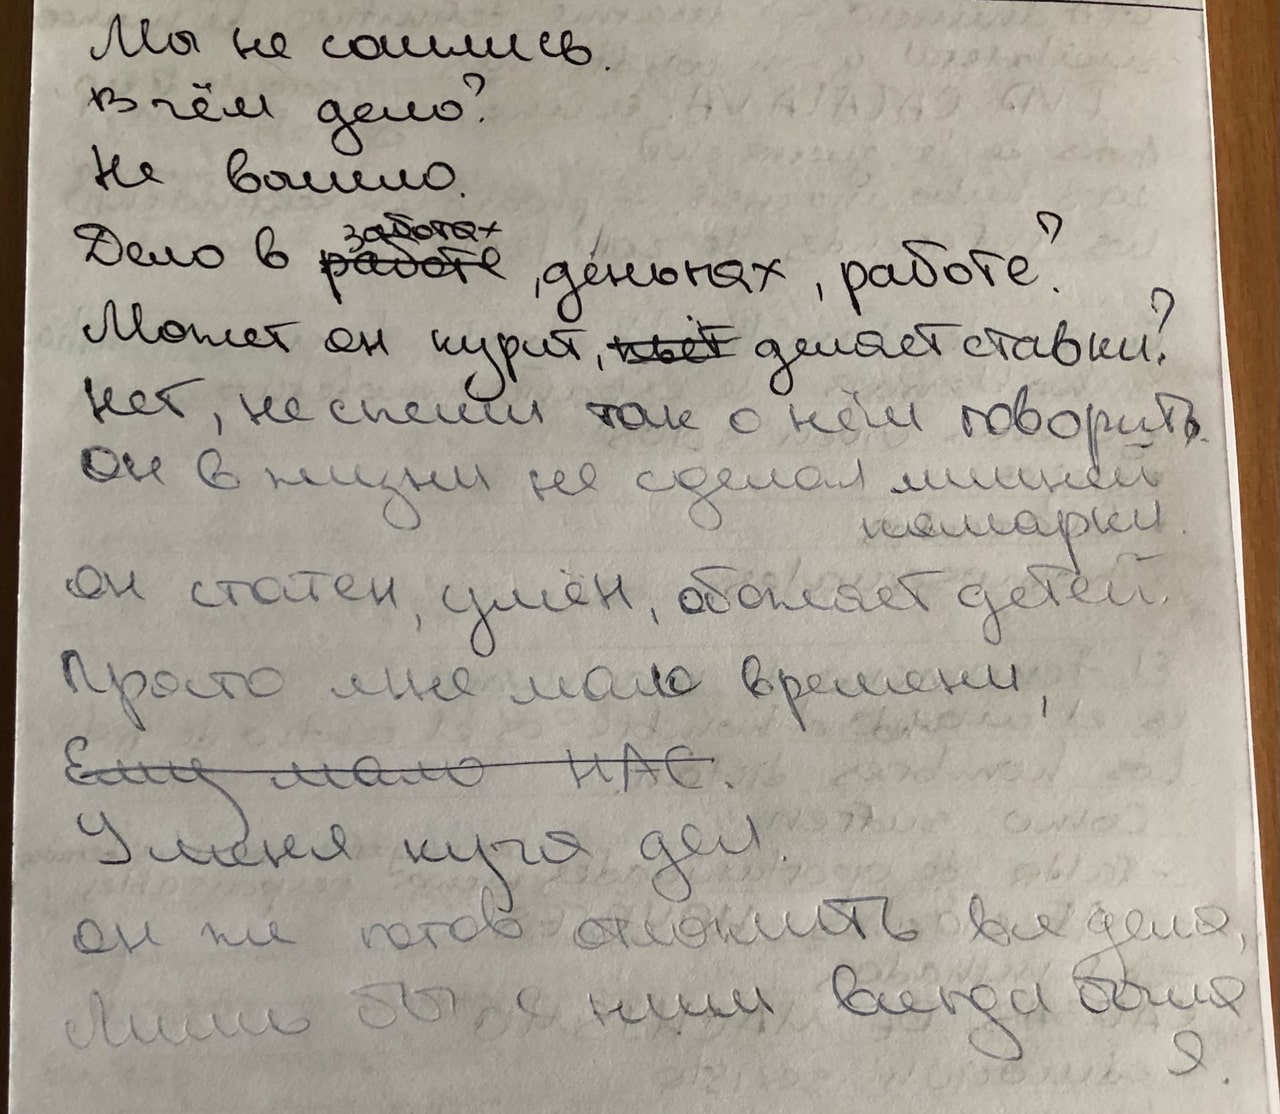 Мы не сошлись.
В чём дело?
Не вышло.
заботах
Дело в работе, деньгах, работе?
Может он курит, пьёт делает ставки?
Нет, не спеши так о нём говорить.
Он в жизни не сделал лишней
помарки.
Он статен, умён, обожает детей.
Просто мне мало времени,
Ему мало НАС.
У меня куча дел.
Он же готов отложить все дела,
Лишь бы с ним всегда была
Я.